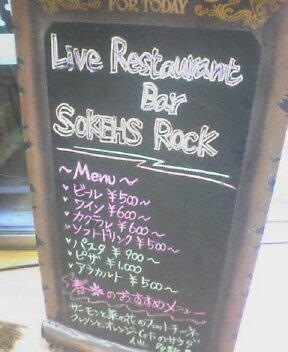 FOR TODAY
Live Restaurant
Bar
SOKEHS ROCK
~Menu~
♥ビール ¥500~
♥ワイン ¥600~
♥カクテル ¥600~
♥ソフトドリンク ¥500~
♥パスタ ¥900~
♥ピザ ¥1,000
♥アラカルト ¥500~
春のおすすめメニュー
サーモンと菜の花のフェットチーネ
クレソンとオレンジ のサラダ